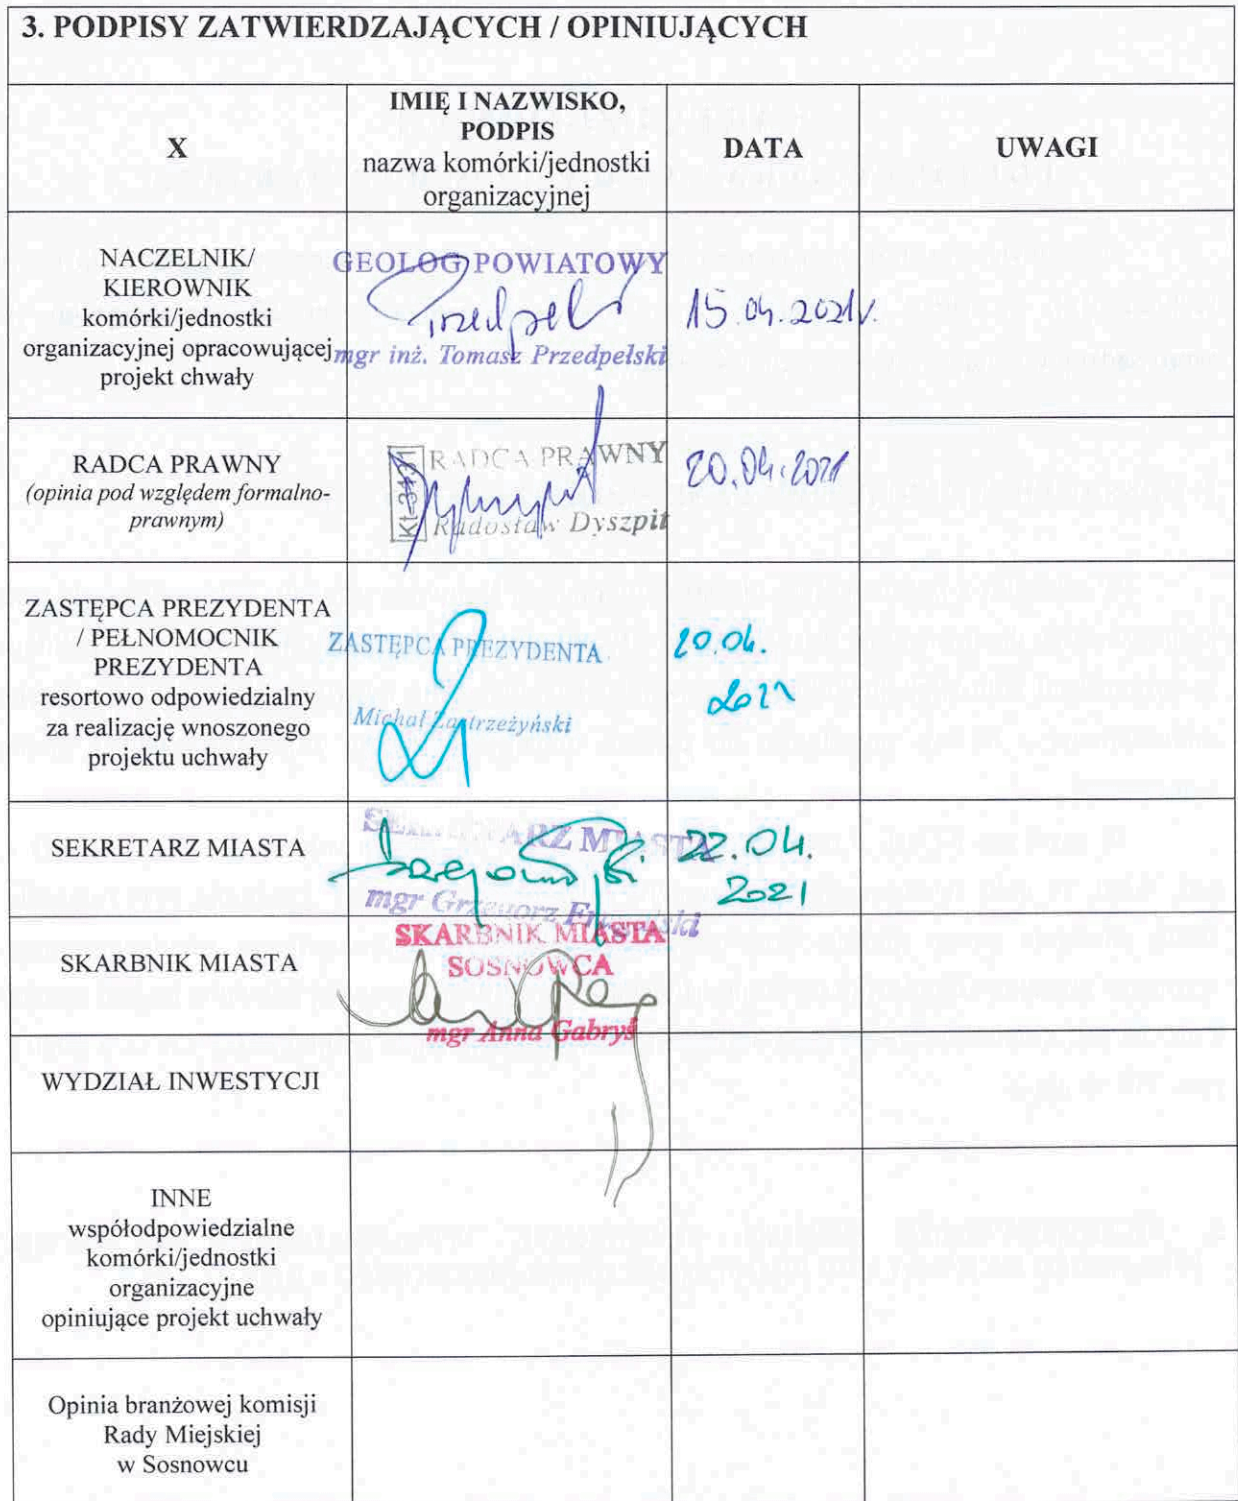 3. PODPISY ZATWIERDZAJĄCYCH / OPINIUJĄCYCH
X
IMIĘ I NAZWISKO,
PODPIS
nazwa komórki/jednostki
organizacyjnej
DATA
UWAGI
NACZELNIK/
KIEROWNIK
komórki/jednostki
organizacyjnej opracowującej
projekt chwały
GEOLOG POWIATOWY
Przedpełski
mgr inż. Tomasz Przedpełski
15.04.2021r.
RADCA PRAWNY
(opinia pod względem formalno-
prawnym)
RADCA PRAWNY
Kl-3431
Radosław Dyszpit
20.04.2021
ZASTĘPCA PREZYDENTA
/ PEŁNOMOCNIK
PREZYDENTA
resortowo odpowiedzialny
za realizację wnoszonego
projektu uchwały
ZASTĘPCA PREZYDENTA
Michał Zastrzeżyński
20.04.
2021
SEKRETARZ MIASTA
SEKRETARZ MIASTA
mgr Grzegorz
22.04.
2021
SKARBNIK MIASTA
SKARBNIK MIASTA
SOSNOWCA
mgr Anna Gabryś
WYDZIAŁ INWESTYCJI
INNE
współodpowiedzialne
komórki/jednostki
organizacyjne
opiniujące projekt uchwały
Opinia branżowej komisji
Rady Miejskiej
w Sosnowcu